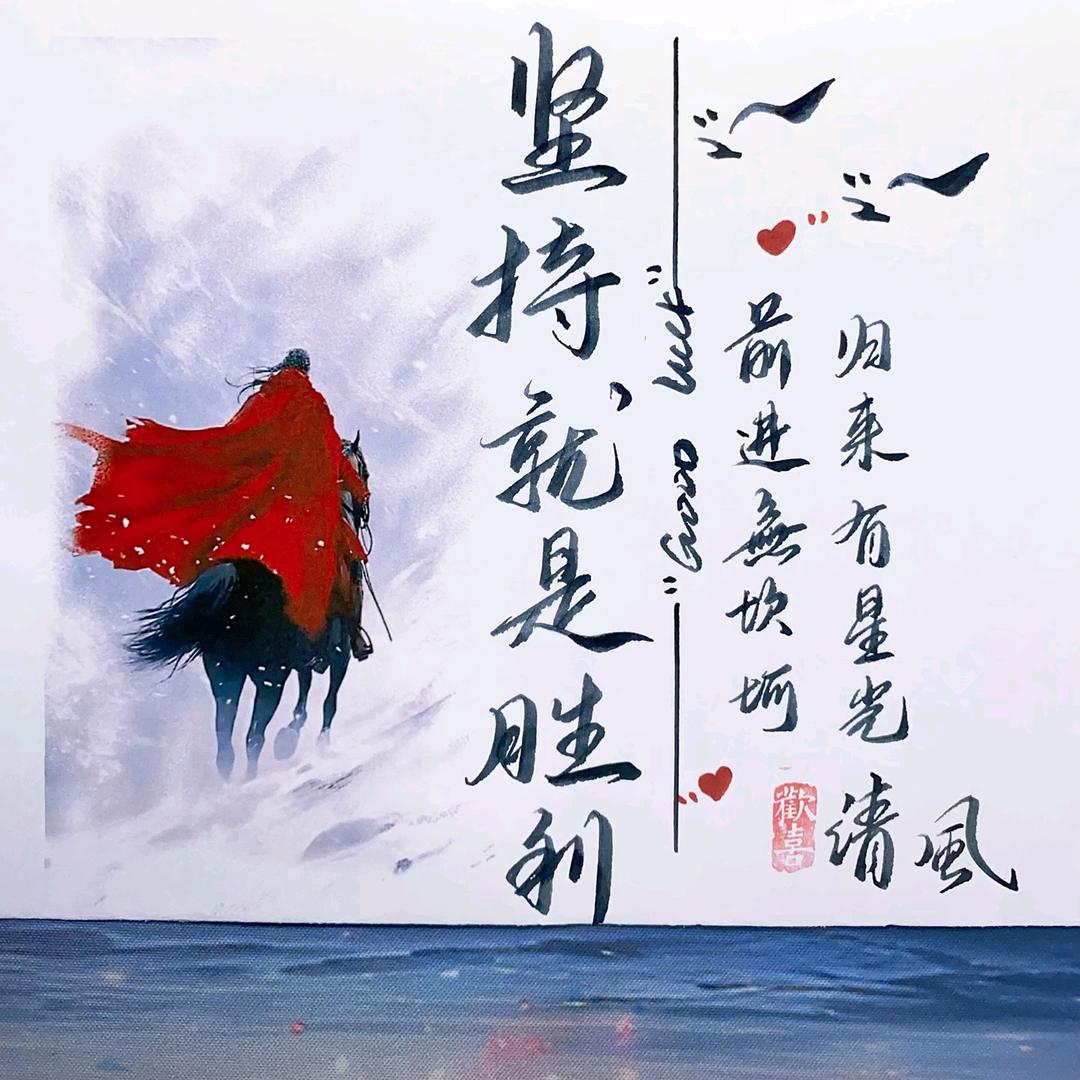 坚持就是胜利
"Good luck"
前进無坎坷
归来有星光
清風
歡喜